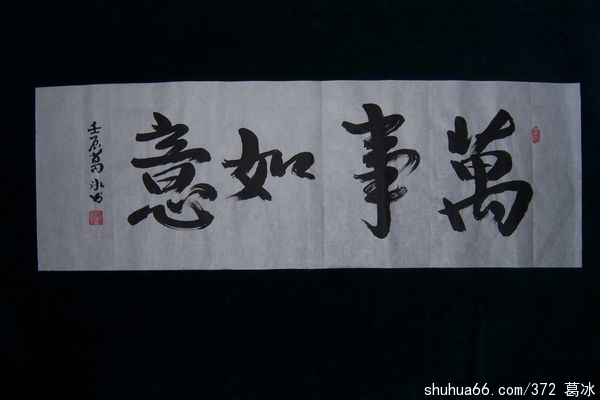 萬事如意
壬辰葛冰书
shuhua66.com/372 葛冰